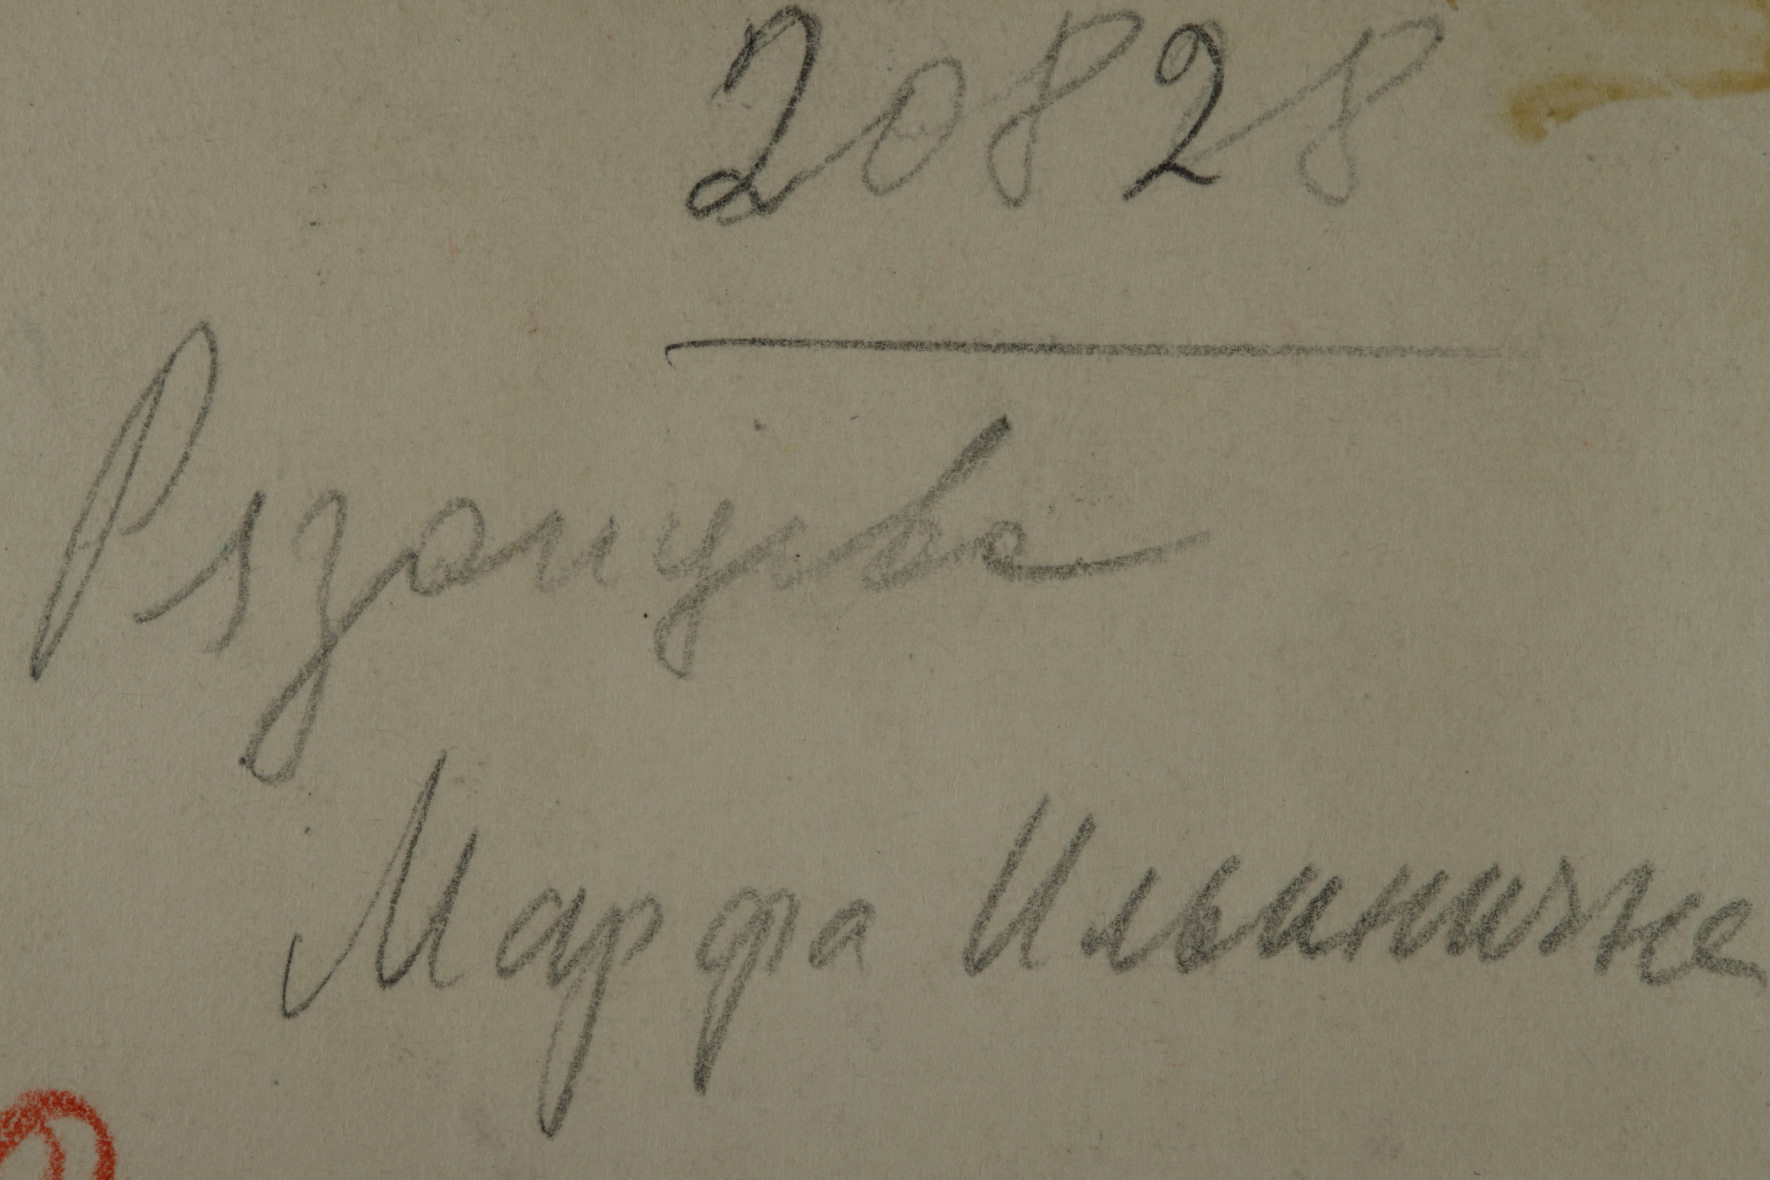 20828
Рязанцева
Марфа Ильинична